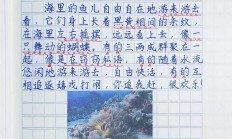 海里的鱼儿自由自在地游来游去
看，它们身上长着黑黄相间的条纹，
在海里左右摇摆，远远看上去，像一
只舞动的蝴蝶。有的三两成群聚在一
起，像是在窃窃私语。有的随着水流
悠闲地游来游去，自由快活；有的互
相追逐嬉戏打闹，你追我赶，很欢乐！